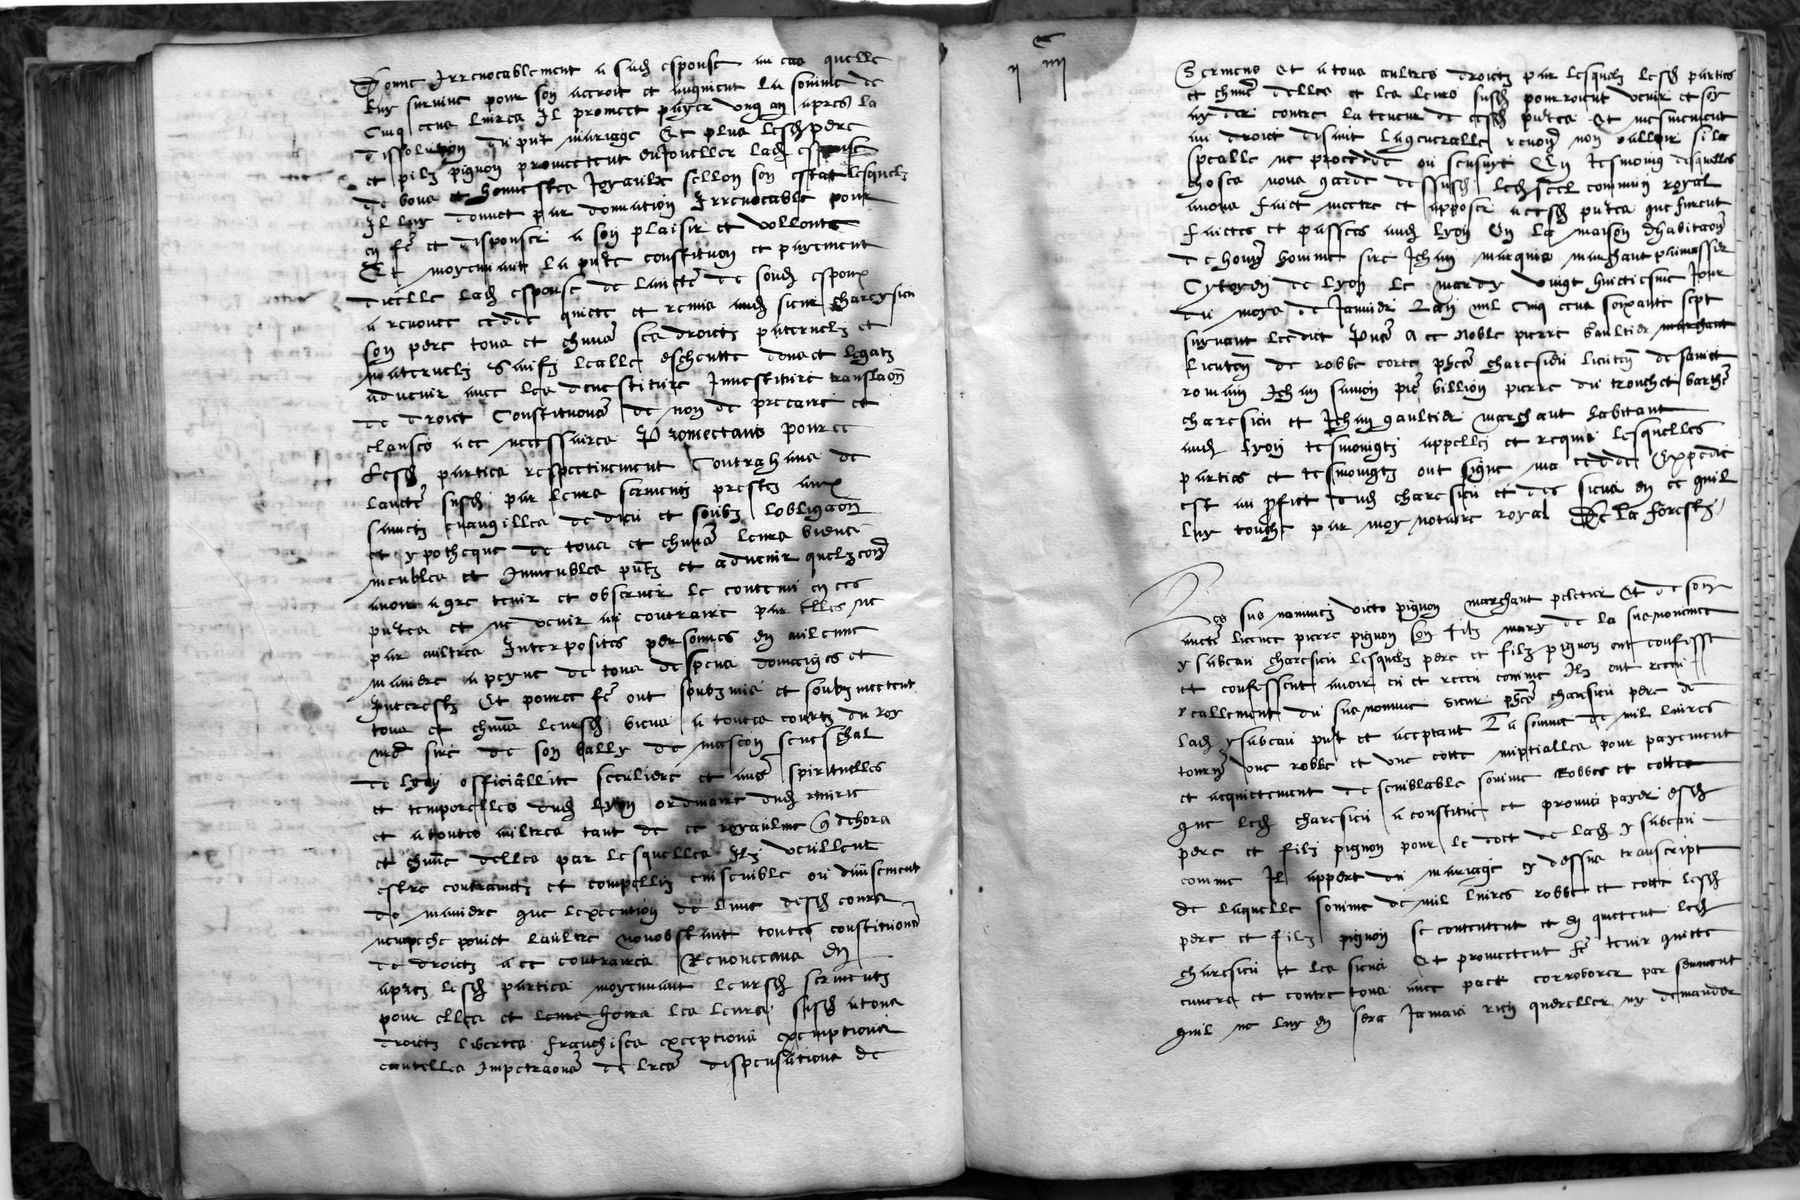 Donne Irrenocablement a sad espouse au cas quelle
luy survive pour son accroit et augment la somme de
Cinq cens livres Il promect payer ung an apres la
dissolution du put mariage Et plus lesd pere
et filz pignon promectent enJoueller lad espouse
de bons et honnestes Joyaulx sellon son estat lesquelz
Il luy donnet par donnation Irrevocable pour
en fe et disponser a son plaisir et vollonte
Et moyennant la pnte constitution et payement
dicelle lad espouse de laucte de sond espoux
a renonce cedde quicte et remis aud sieur charcysieu
son pere tous et chuns ses droictz paternelz et
maternelz lealle escheutte dons et legatz
advenir avec les devestiture Investiture translaon
de droict Constitutions de non de precaire et
clauses a ce necessaires Promectans pource
Lesd parties respectivement Contrahans de
laucte susd par leurs sermentz prestez aux
sainctz evangilles de dieu et soubz lobligaon
et ypotheque de tous et chuns leurs biens
meubles et Immeubles pntz et advenir quelzconq
avoir agre tenir et observer le contenu en ces
pntes et ne venir au contraire par elles ne
par aultres Interposites personnes en aulcune
maniere a peyne de tous despens domaiges et
Interestz Et pource fe ont soubzmis et soubzmectent
tous et chuns leursd biens a toutes courtz du roy
nre sire de son bally de mascon seneschal
de lyon officiallite seculiere et aues spirituelles
et temporelles dud lyon ordinaire dud
et a toutes aultres tant de ce royaulme que dehors
et chune delles par lesquelles Ilz veuillent
estre contrainctz et compellis ensemble ou divisement
de maniere que lexecution de lune desd cours
nempeche point laultre nonobstant toutes constitutions
de droictz a ce contraires Renonceans En
apres lesd parties moyennant leursd sermentz
pour elles et les leurs susd a tous
droictz libertes franchises exceptions exemptions
cautelles Impetraons de lres dispensations de
Sermens Et a tous aultres droictz par lesquelz lesd parties
et chune delles et les leurs susd pourroient venir et soy
ayder contre la teneur de cesd pntes Et mesmement
au droict disant la generalle renon non valloir si la
spealle ne procedde ou sensuyt En Tesmoing desquelles
choses nous garde dessusd led scel commun royal
avons faict mectre et apposer a cesd pntes que furent
faictes et passees aud lyon En la maison dhabitaon
de hon homme sire Jehan marquis marchant
Cytoyen de lyon le mardy vingt huictiesme Jour
du moys de Janvier Lan mil Cinq cens soixante sept
suyvant ledict A ce noble pierre Gaultier
lieuten de robbe corte charcsieu lieuten de sainct
romain Jehan simon pie billion pierre du tronchet barthe
charcsieu et Jehan gaultier marchant habitant
aud lyon tesmoingtz appellez et requis lesquelles
parties et tesmoingtz ont signe ma cedde Expedie
est au profict dud charcsieu et des siens en ce quil
luy touche par moy notaire royal De la forestz

Les sus nommez pignon marchant peletier Et de son
aucte licence pierre pignon son filz mary de la susnommee
ysabeau charcsieu lesquelz pere et filz pignon ont confesse
et confessent avoir eu et receu comme Ilz ont receu
reallement du susnomme sieur charcsieu pere de
lad ysabeau pnt et aceptant La somme de mil livres
tourn une robbe et une cotte nuptialles pour payement
et acquietement de semblable somme Robbes et cottes
que led charcsieu a constitue et promis payer esd
pere et filz pignon pour le dot de lad ysabeau
comme Il appert du mariage cy dessus transcript
de laquelle somme de mil livres robbe et cotte lesd
pere et filz pignon se contentent et en quictent led
charcsieu et les siens Et promectent fe tenir quicte
envers et contre tous avec pact corroborer par serment
quil ne luy en sera Jamais rien quereller ny demander